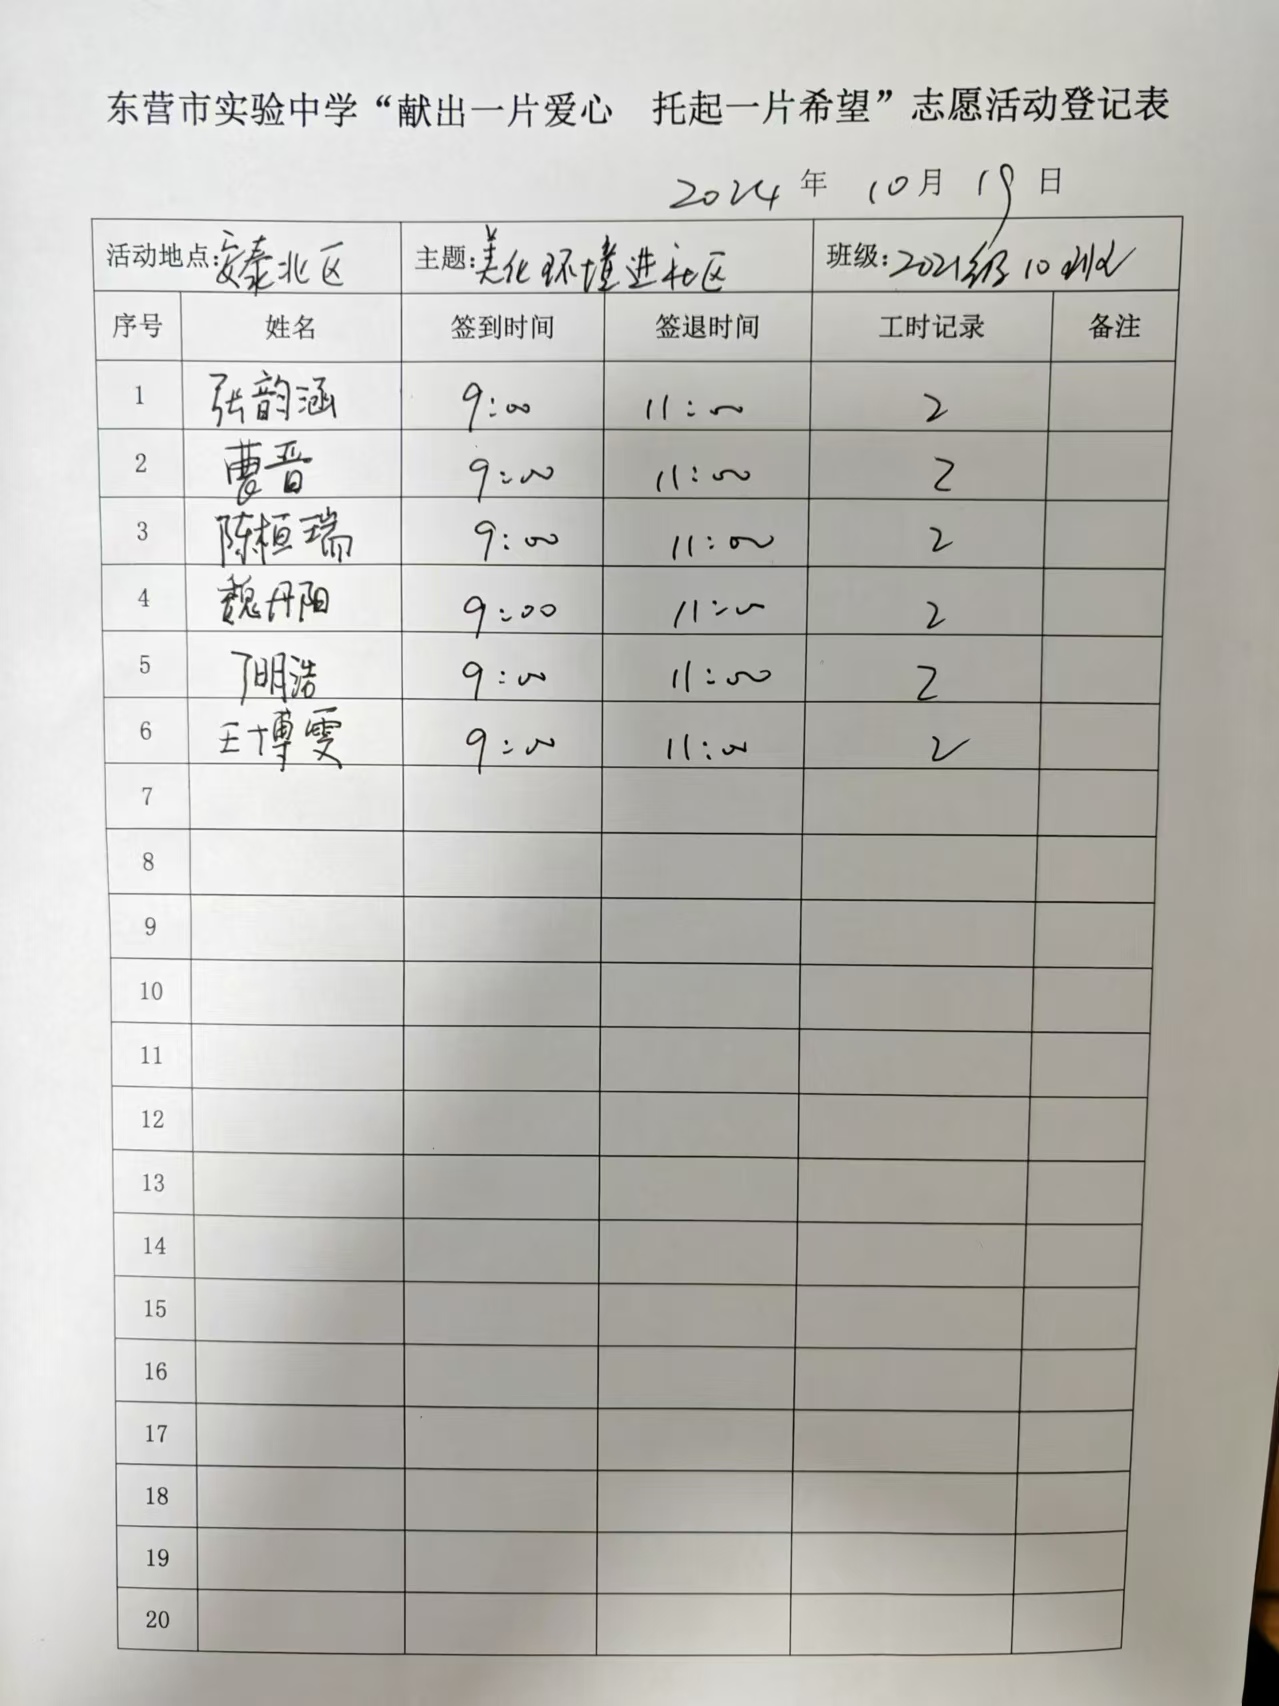 东营市实验中学“献出一片爱心 托起一片希望”志愿活动登记表
2024 年 10 月 19 日
活动地点:安泰北区 主题:美化环境进社区 班级:2021级10班
序号 姓名 签到时间 签退时间 工时记录 备注
1 张韵涵 9:00 11:00 2
2 曹晋 9:00 11:00 2
3 陈桓瑞 9:00 11:00 2
4 魏丹阳 9:00 11:00 2
5 丁明浩 9:00 11:00 2
6 王博雯 9:00 11:00 2
7
8
9
10
11
12
13
14
15
16
17
18
19
20